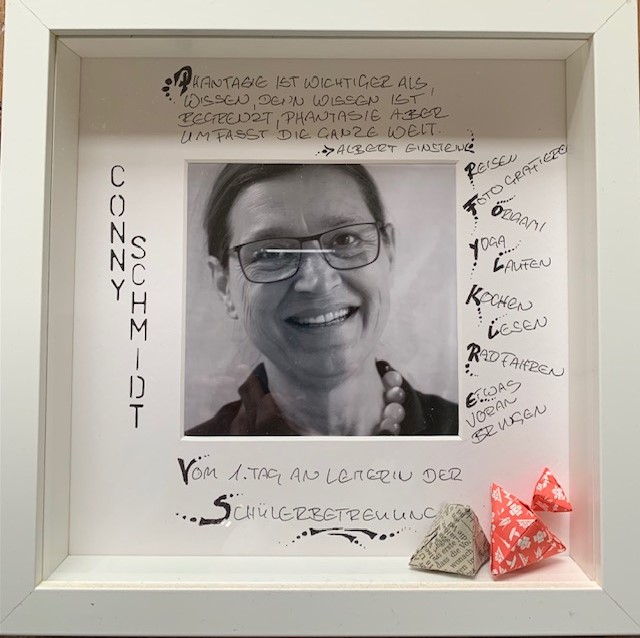 PHANTASIE IST WICHTIGER ALS
WISSEN, DENN WISSEN IST
BEGRENZT, PHANTASIE ABER
UMFASST DIE GANZE WELT.
ALBERT EINSTEIN
CONNY
SCHMIDT
REISEN
FOTOGRAFIEREN
ORIGAMI
YOGA
LAUFEN
KOCHEN
LESEN
RADFAHREN
ETWAS
VORAN
BRINGEN
VOM 1. TAG AN LEITERIN DER
SCHÜLERBETREUUNG